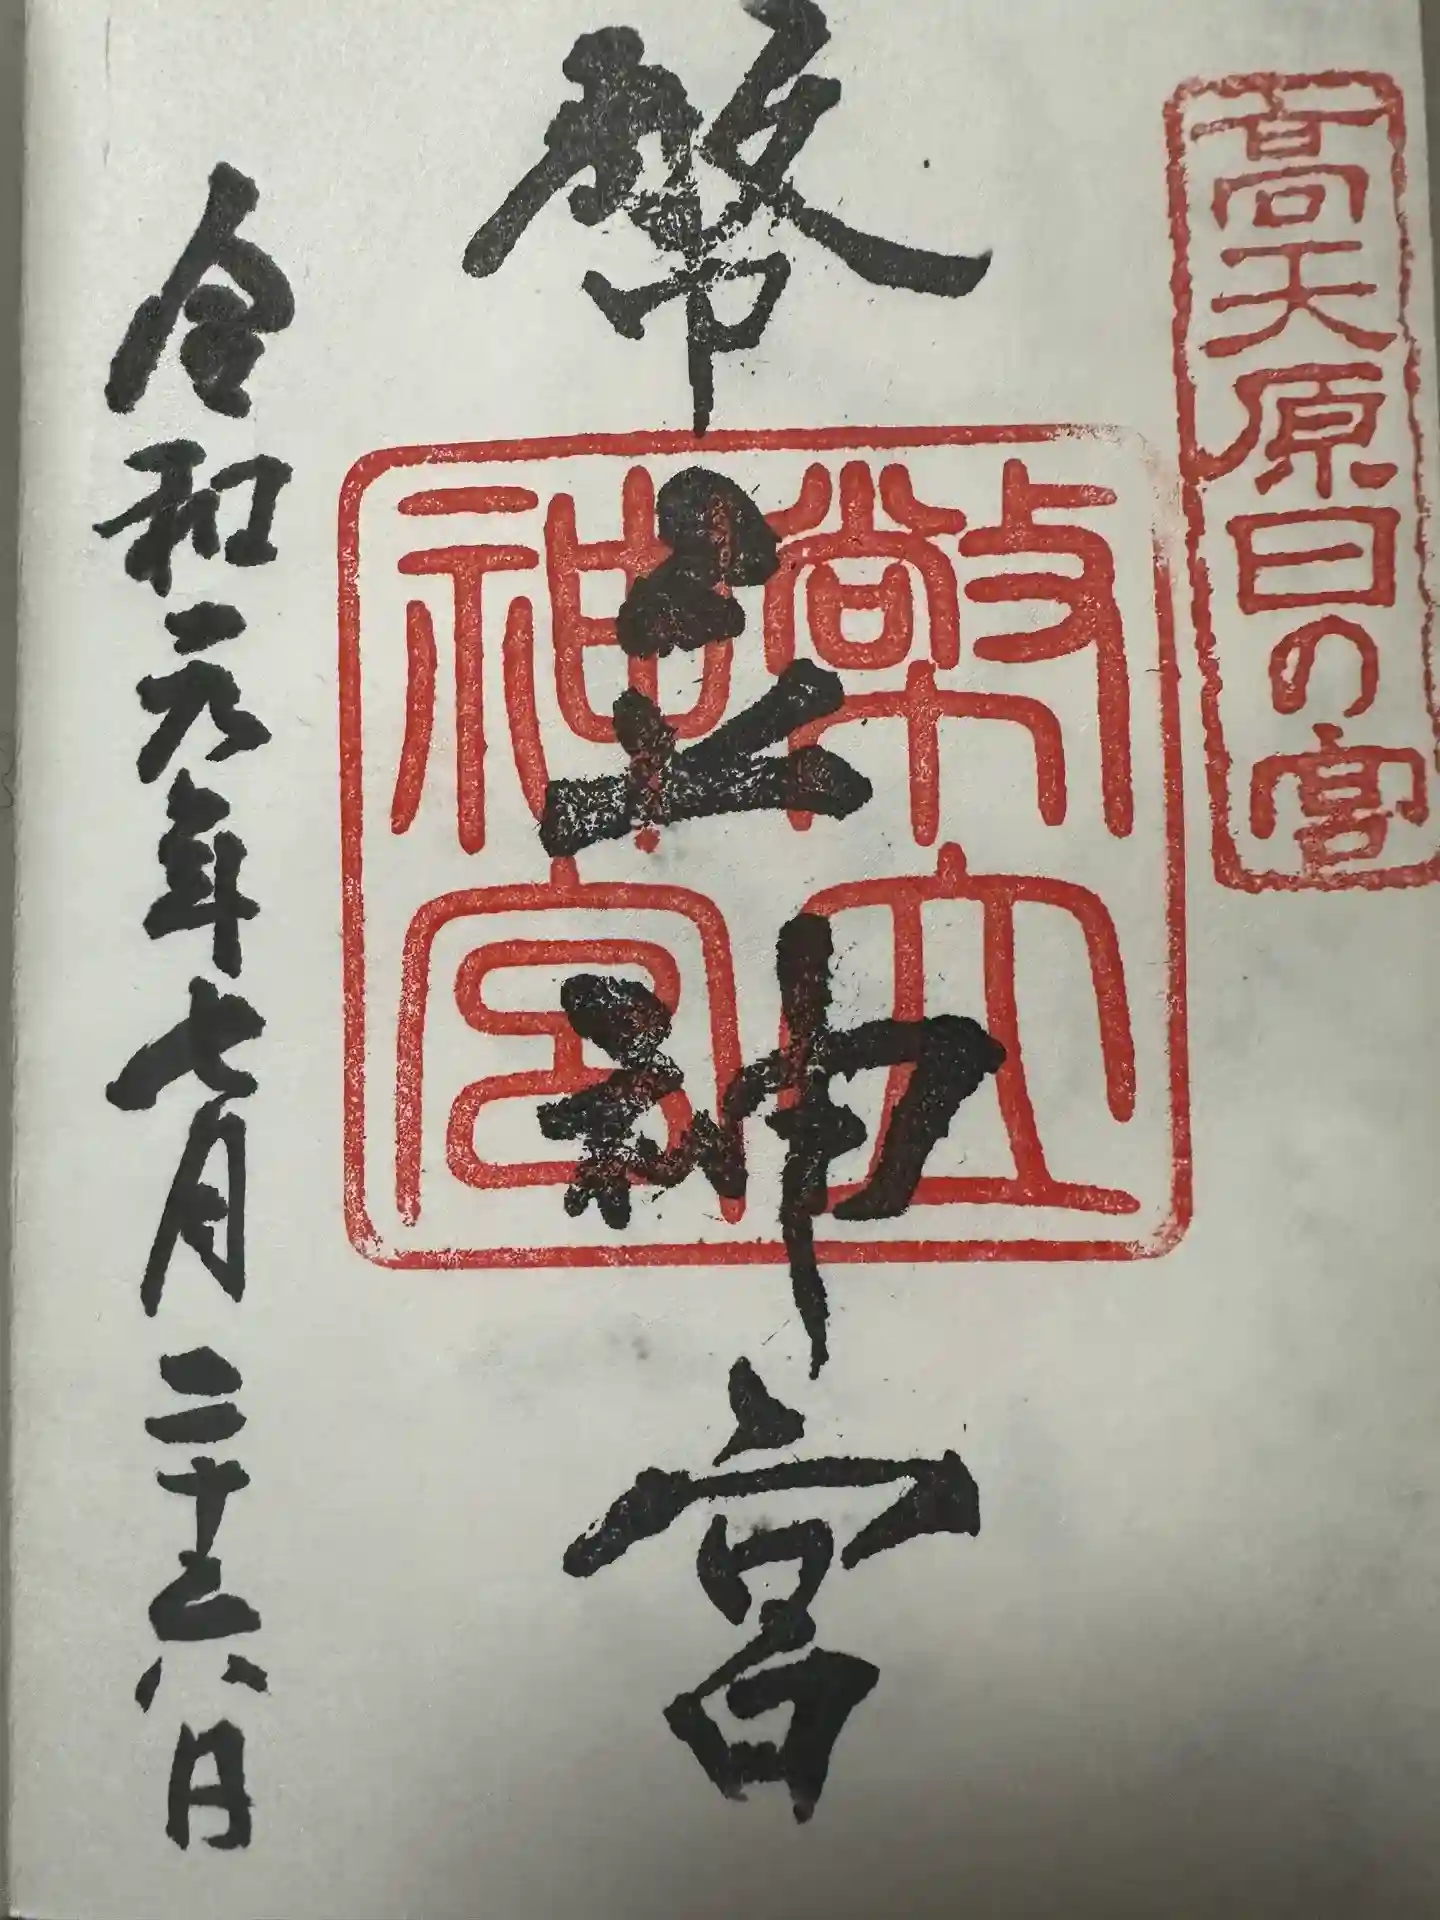 高天原日の宮
幣立神宮
幣立
神宮
令和元年七月二十六日